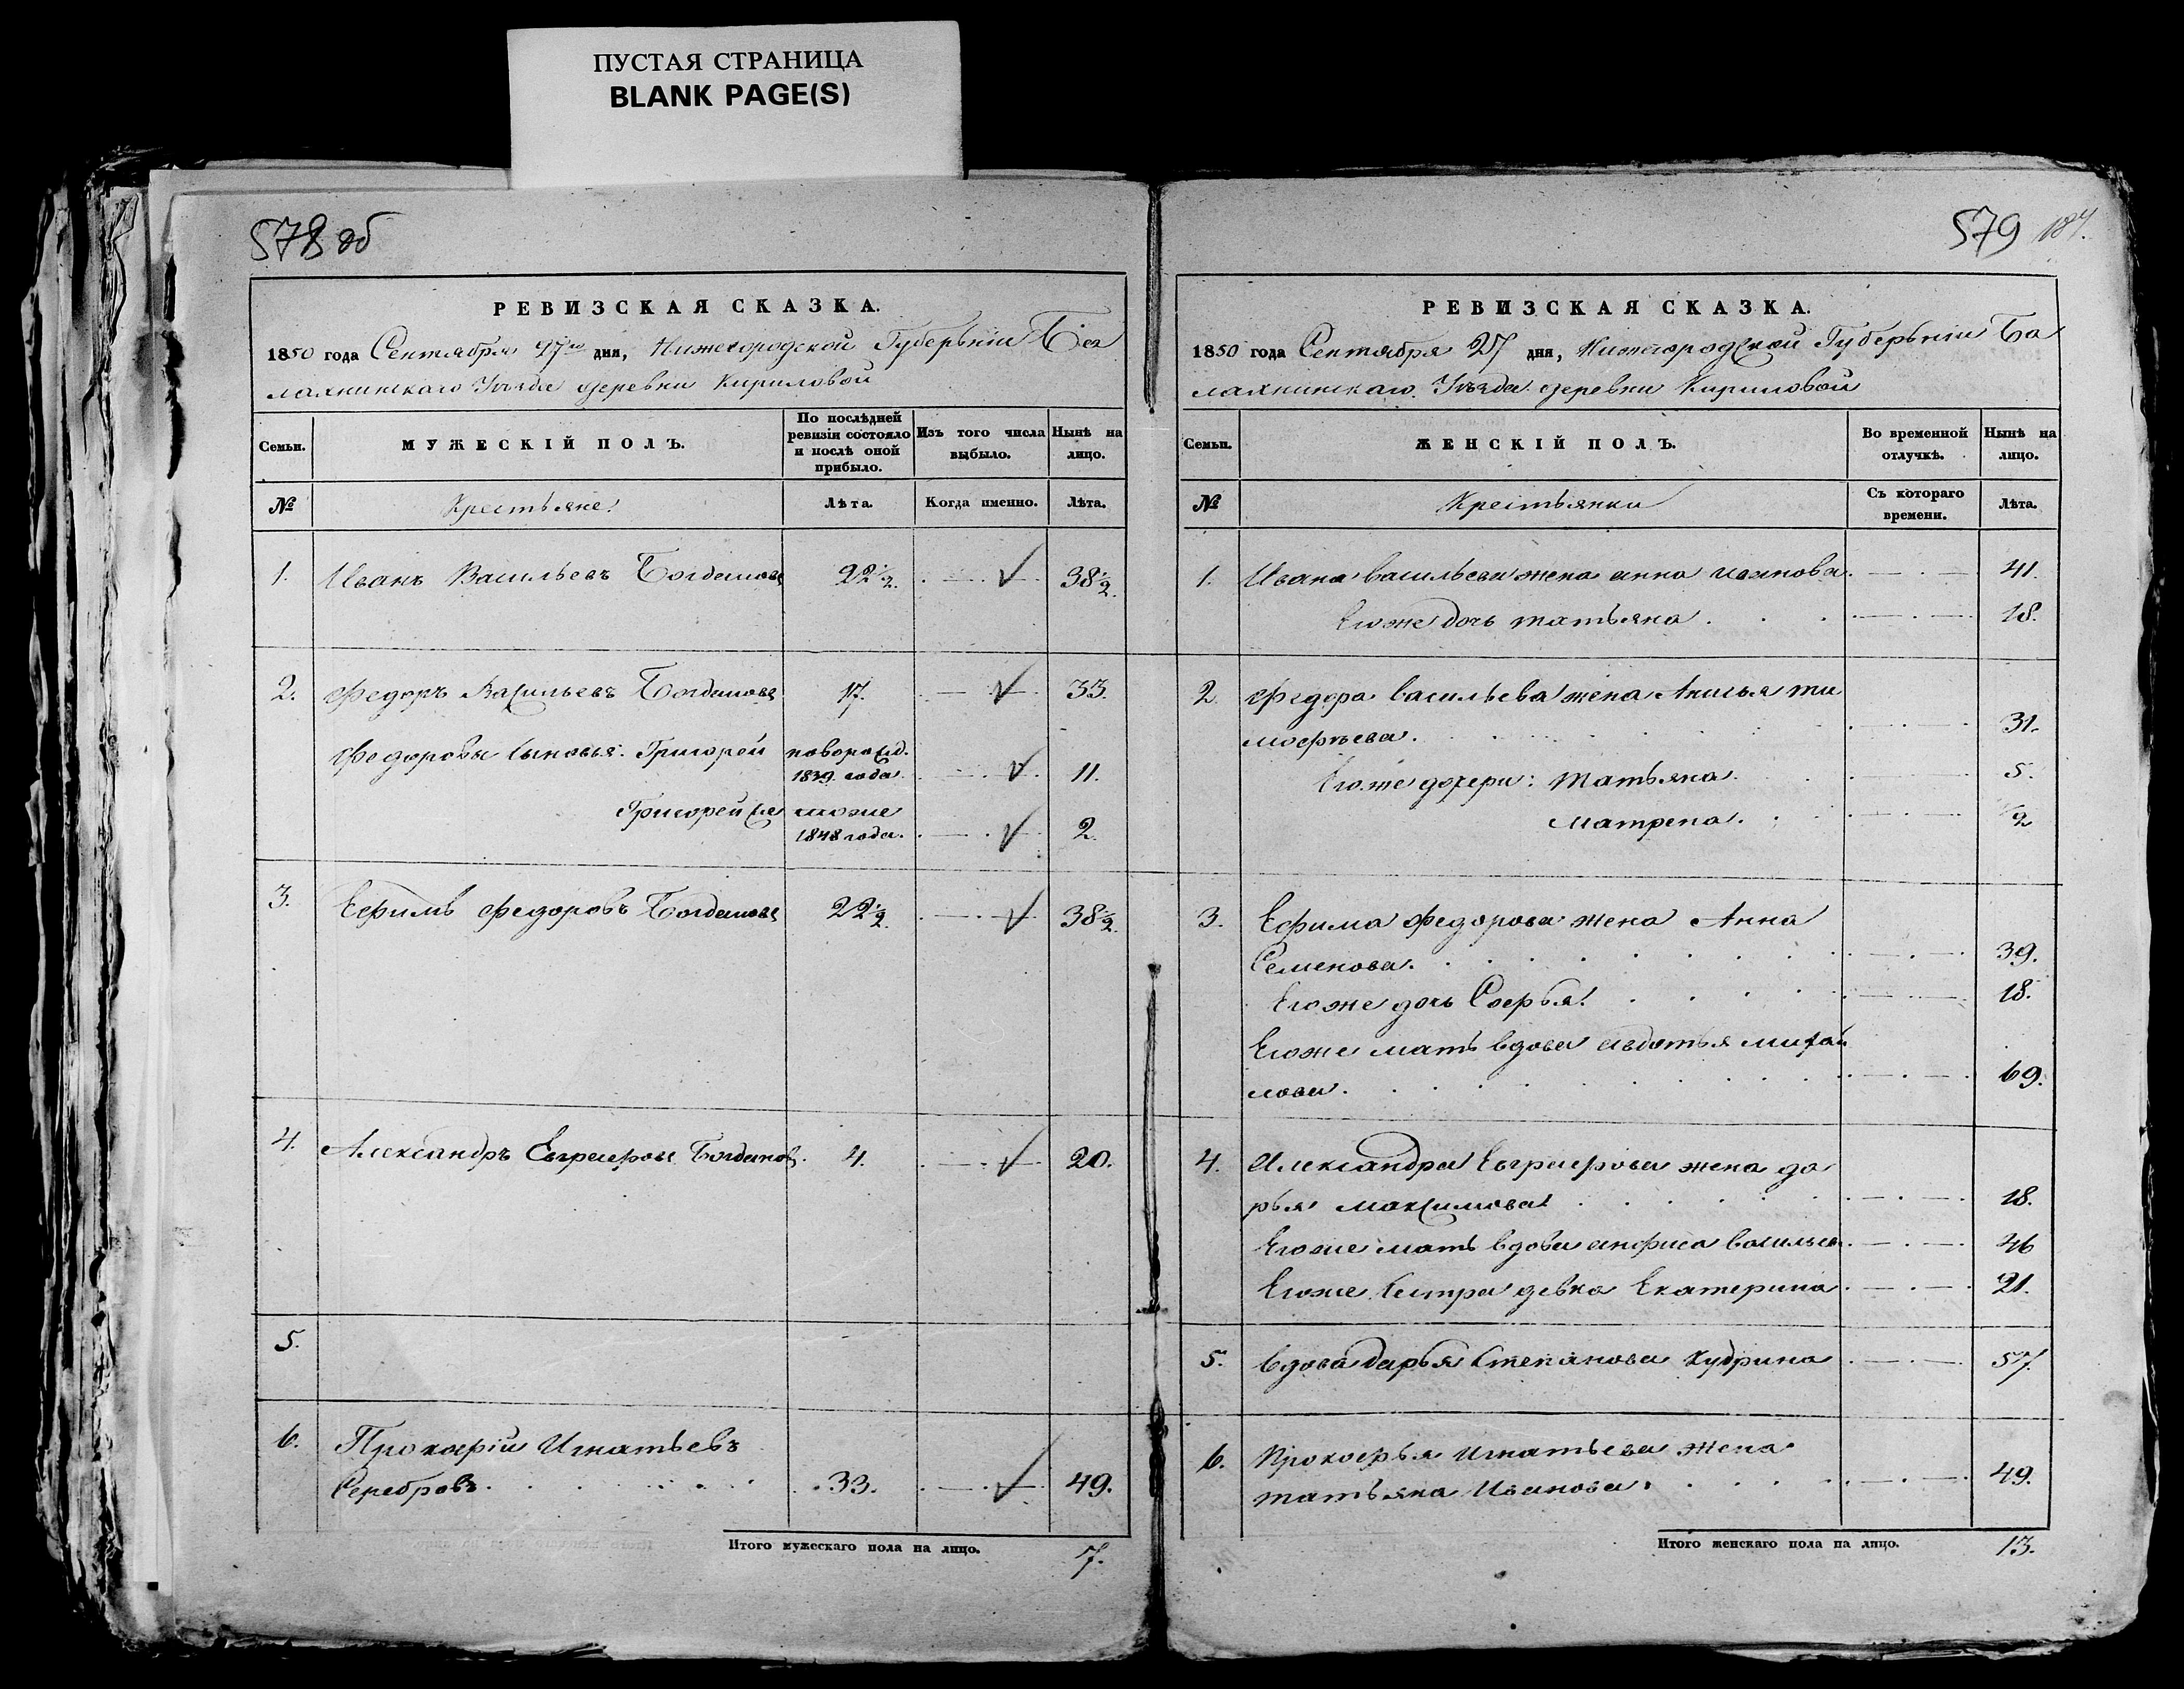 ПУСТАЯ СТРАНИЦА
BLANK PAGE(S)
578 об
РЕВИЗСКАЯ СКАЗКА.
1850 года Сентября 27го дня, Нижегородской Губернии Ба
лахнинскаго Уѣзда деревни Кириловой
Семьи. МУЖЕСКІЙ ПОЛЪ. По послѣдней ревизіи состояло и послѣ оной прибыло. Изъ того числа выбыло. Нынѣ на лицо.
№ Крестьяне. Лѣта. Когда именно. Лѣта.
1. Иванъ Васильевъ Богдановъ 22 1/2. 38 1/2.
2. Федоръ Васильевъ Богдановъ 17. 33.
Федоровы сыновья: Григорей новорожд.
1839 года. 11.
Григорей же
1848 года. 2.
3. Ефимъ Федоровъ Богдановъ 22 1/2. 38 1/2.
4. Александръ Евграфовъ Богдановъ. 4. 20.
5.
6. Прокофій Игнатьевъ
Серебровъ. 33. 49.
Итого мужескаго пола на лицо. 7.
579 187.
РЕВИЗСКАЯ СКАЗКА.
1850 года Сентября 27 дня, Нижегородской Губерніи Ба
лахнинскаго Уѣзда деревни Кириловой
Семьи. ЖЕНСКІЙ ПОЛЪ. Во временной отлучкѣ. Нынѣ на лицо.
№ Крестьянки Съ котораго времени. Лѣта.
1. Ивана васильева жена анна иванова. 41.
Его же дочь татьяна. 18.
2 Федора васильева жена Анисья ти
мофѣева. 31.
Его же дочери: Татьяна. 5.
матрена. 1/2
3. Ефима Федорова жена Анна
Семенова. 39.
Его же дочь Софья. 18.
Его же мать вдова авдотья михай
лова. 69.
4. Александра Евграфова жена да
рья максимова 18.
Его же мать вдова анфиса васильев. 46
Его же сестра девка Екатерина. 21.
5. вдова дарья Степанова Кудрина 57.
6. Прокофья игнатьева жена
татьяна Иванова. 49.
Итого женскаго пола на лицо. 13.